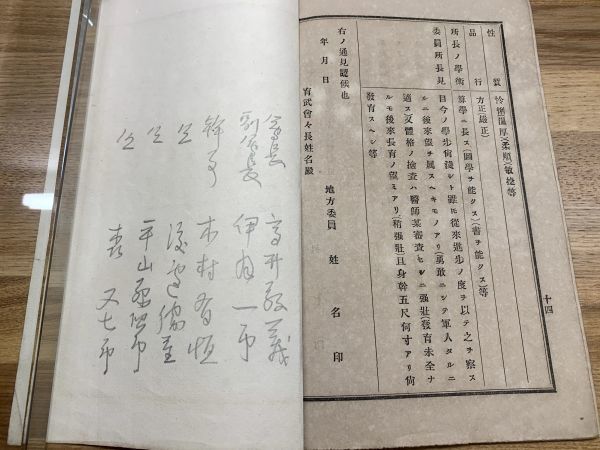 十四
性質 怜悧温厚(柔順)敏捷等
品行 方正(嚴正)
所長ノ學術 算學ニ長ス(圖學ヲ能クス)(書ヲ能クス)等
委員所長見 目今ノ學歩尚淺シト雖𪜈從來進歩ノ度ヲ以テ之ヲ察ス
ルニ後來望ヲ属スヘキモノアリ(勇敢ニシテ軍人タルニ
適ス)又體格ノ撿査ハ醫師某審査セルニ强壯(發育未全ナ
ルモ後來長育ノ望ミアリ)(稍强壯)且身幹五尺何寸アリ尙
發育スヘシ等
右ノ通見認候也
年月日
地方委員 姓名印
育武會々長姓名殿
會長
副會長 伊 一郎
幹事 木村 恒
仝
仝 平山
仝 又七郎